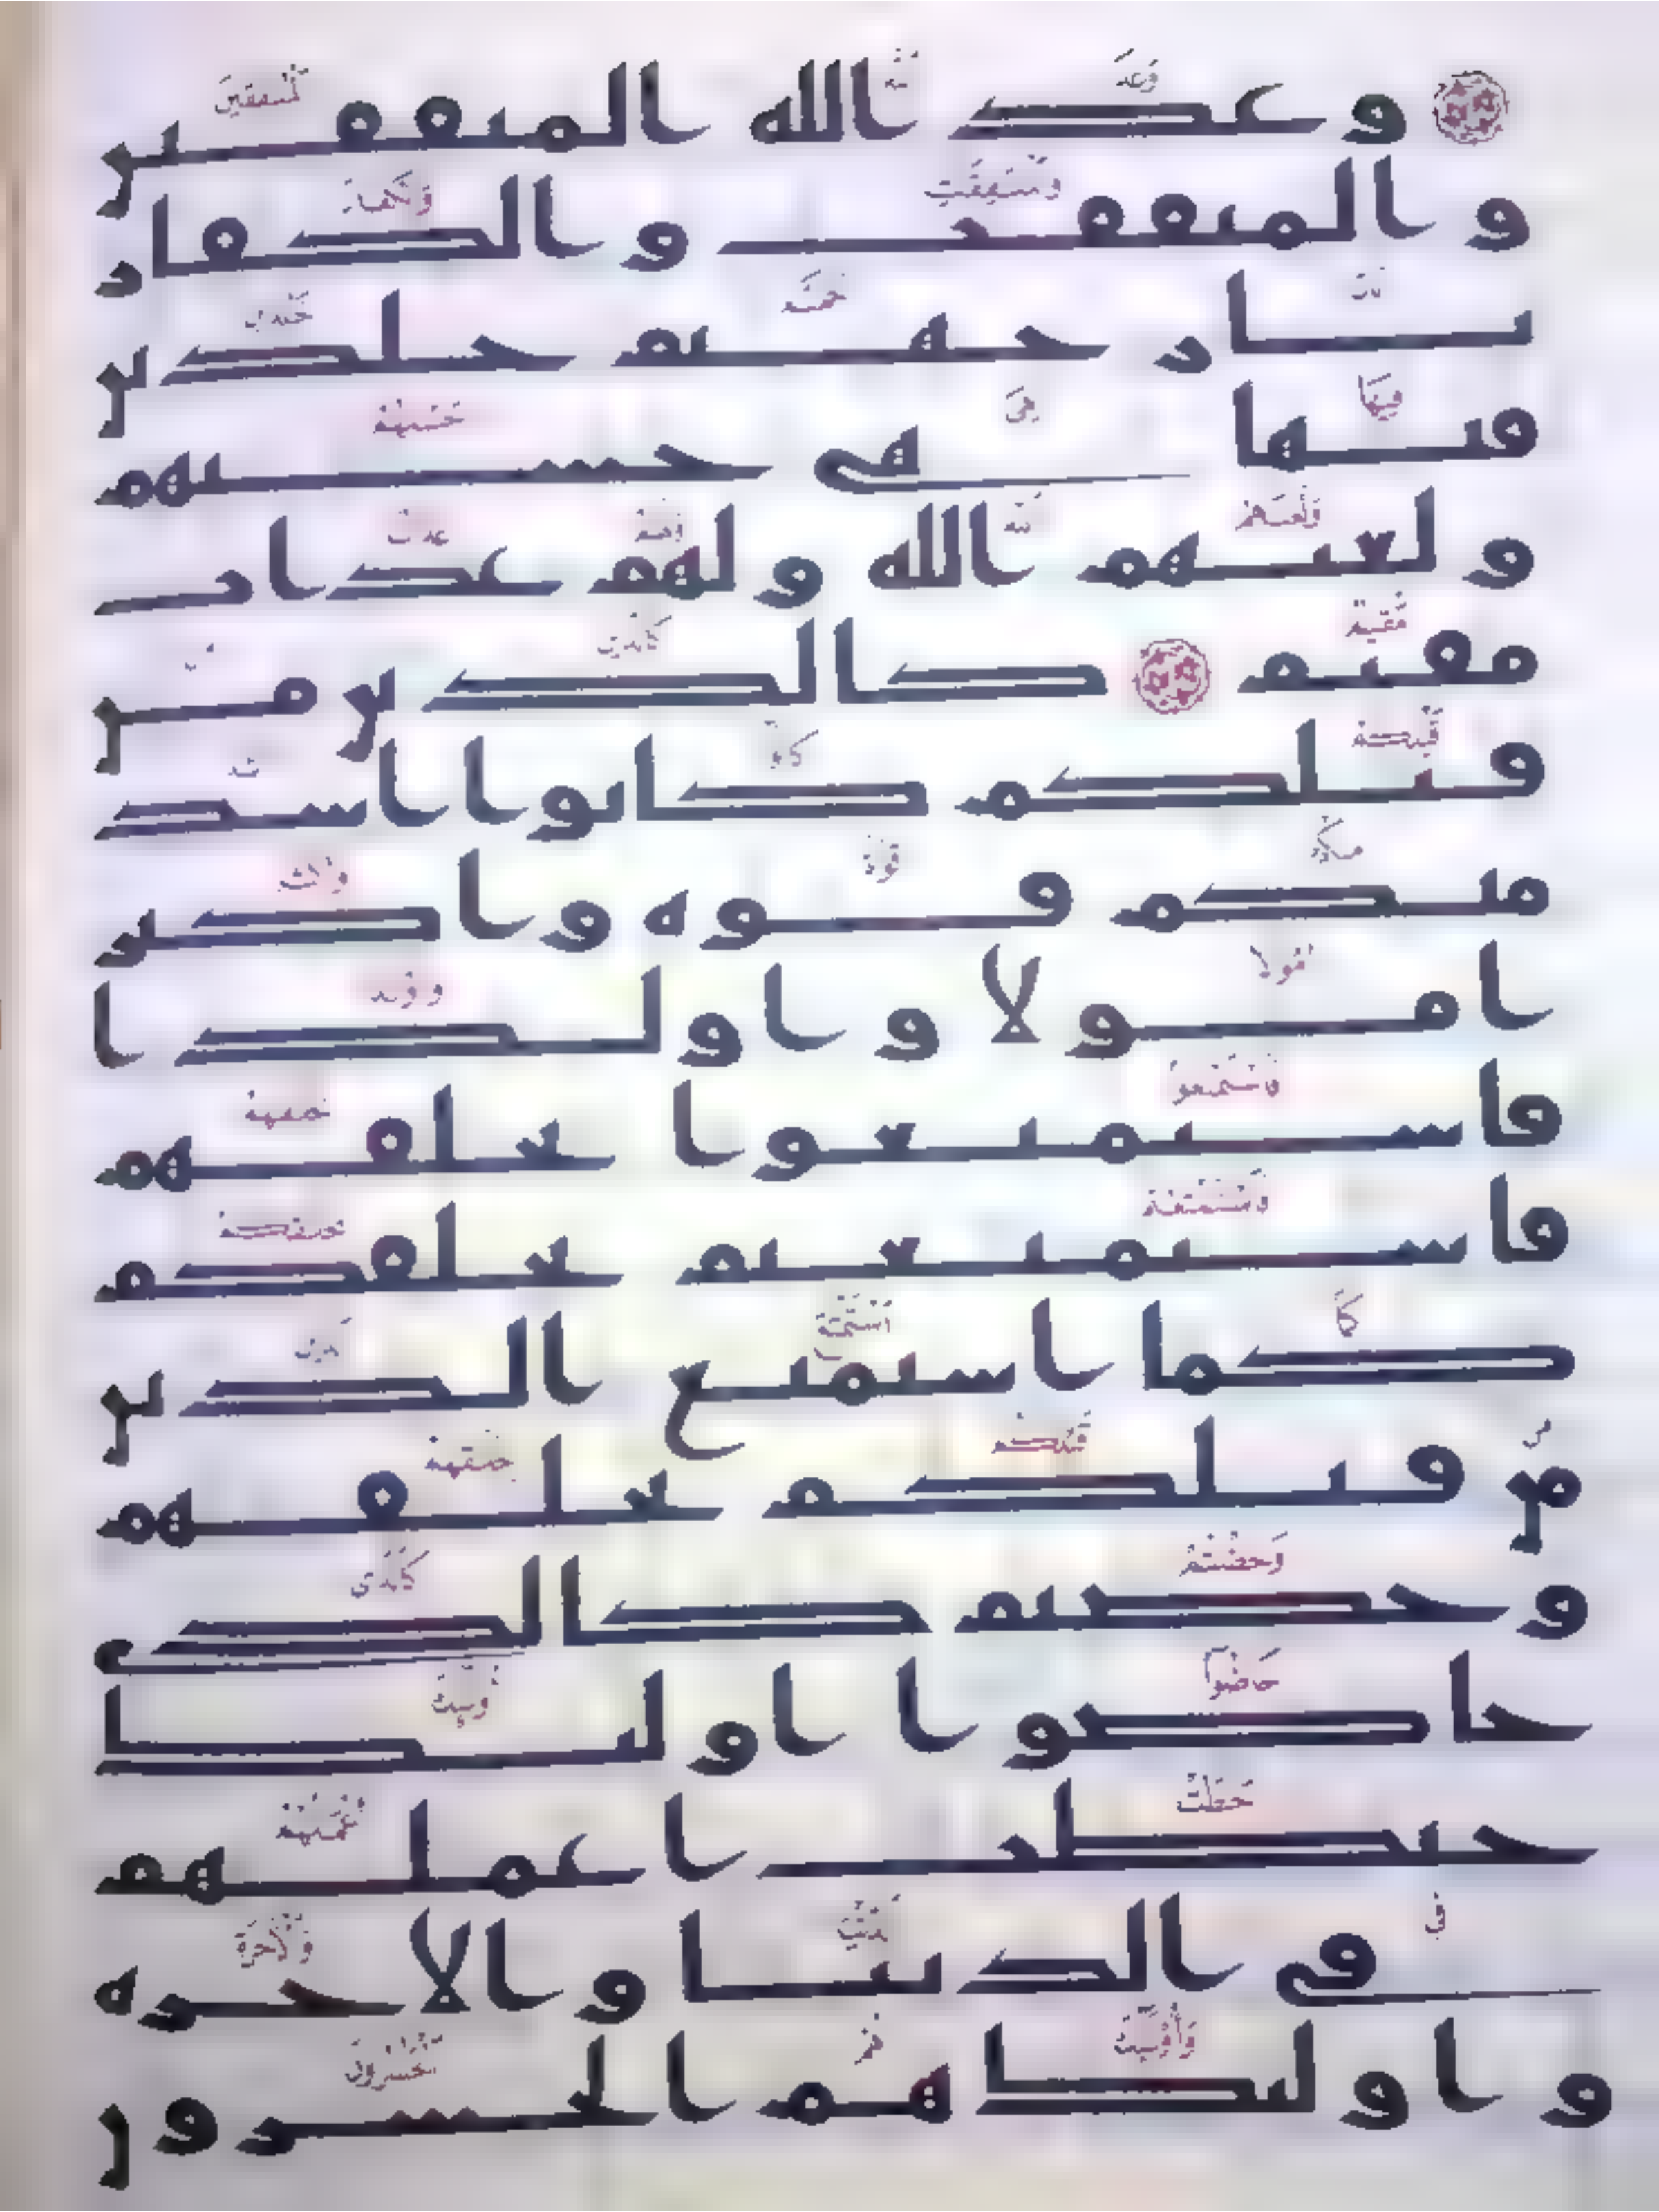 وعد الله المنفقين
والمنفقت والكفار
نار جهنم خلدين
فيها هي حسبهم
ولعنهم الله ولهم عذاب
مقيم كالذين من
قبلكم كانوا اشد
منكم قوة واكثر
امولا واولدا
فاستمتعوا بخلقهم
فاستمتعتم بخلقكم
كما استمتع الذين
من قبلكم بخلقهم
وخضتم كالذي
خاضوا اولئك
حبطت اعملهم
في الدنيا والاخرة
واولئك هم الخسرون